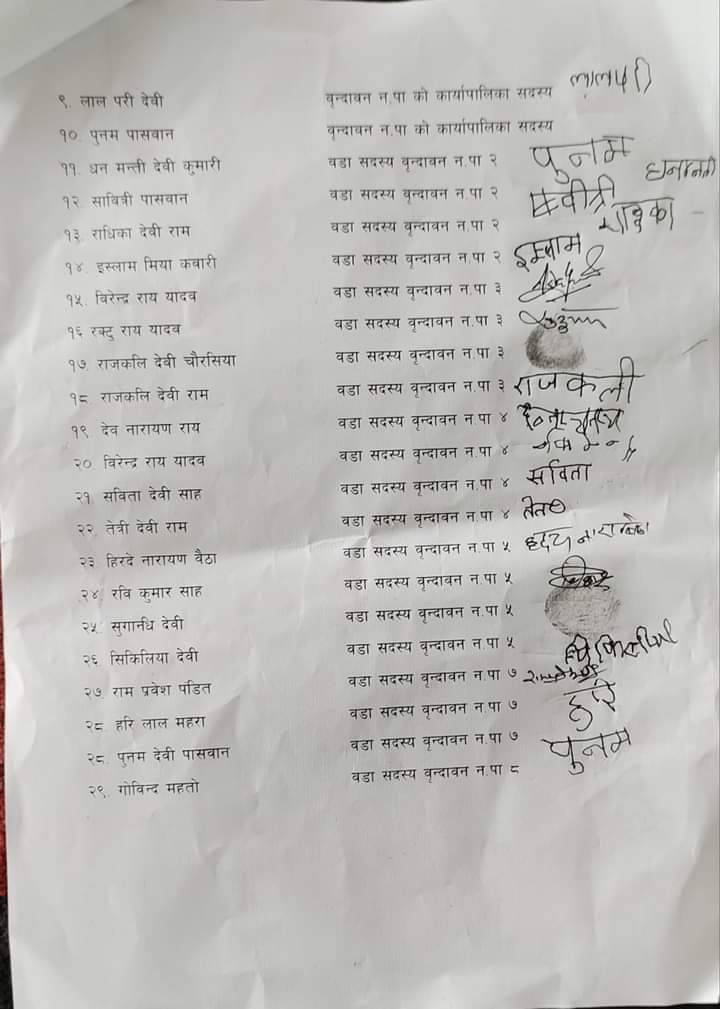 ९. लाल परी देवी वृन्दावन न.पा को कार्यापालिका सदस्य लालपरी
१०. पुनम पासवान वृन्दावन न.पा को कार्यापालिका सदस्य
११. धन मन्ती देवी कुमारी वडा सदस्य वृन्दावन न.पा २ पुनम धनमन्ती
१२. सावित्री पासवान वडा सदस्य वृन्दावन न.पा २
१३. राधिका देवी राम वडा सदस्य वृन्दावन न.पा २
१४. इस्लाम मिया कवारी वडा सदस्य वृन्दावन न.पा २ इस्लाम
१५. विरेन्द्र राय यादव वडा सदस्य वृन्दावन न.पा ३
१६ रक्टु राय यादव वडा सदस्य वृन्दावन न.पा ३
१७. राजकलि देवी चौरसिया वडा सदस्य वृन्दावन न.पा ३
१८ राजकलि देवी राम वडा सदस्य वृन्दावन न.पा ३ राजकली
१९ देव नारायण राय वडा सदस्य वृन्दावन न.पा ४
२० विरेन्द्र राय यादव वडा सदस्य वृन्दावन न.पा ४
२१. सविता देवी साह वडा सदस्य वृन्दावन न.पा ४ सविता
२२. तेत्री देवी राम वडा सदस्य वृन्दावन न.पा ४
२३ हिरदे नारायण वैठा वडा सदस्य वृन्दावन न.पा ५
२४. रवि कुमार साह वडा सदस्य वृन्दावन न.पा ५
२५. सुगान्धि देवी वडा सदस्य वृन्दावन न.पा ५
२६ सिकिलिया देवी वडा सदस्य वृन्दावन न.पा ५
२७ राम प्रवेश पंडित वडा सदस्य वृन्दावन न.पा ७
२८ हरि लाल महरा वडा सदस्य वृन्दावन न.पा ७ हरि
२८. पुनम देवी पासवान वडा सदस्य वृन्दावन न.पा ७ पुनम
२९. गोविन्द महतो वडा सदस्य वृन्दावन न.पा ८